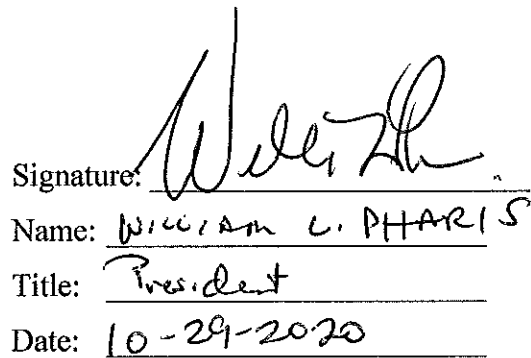 Signature:
Name: WILLIAM L. PHARIS
Title: President
Date: 10-29-2020